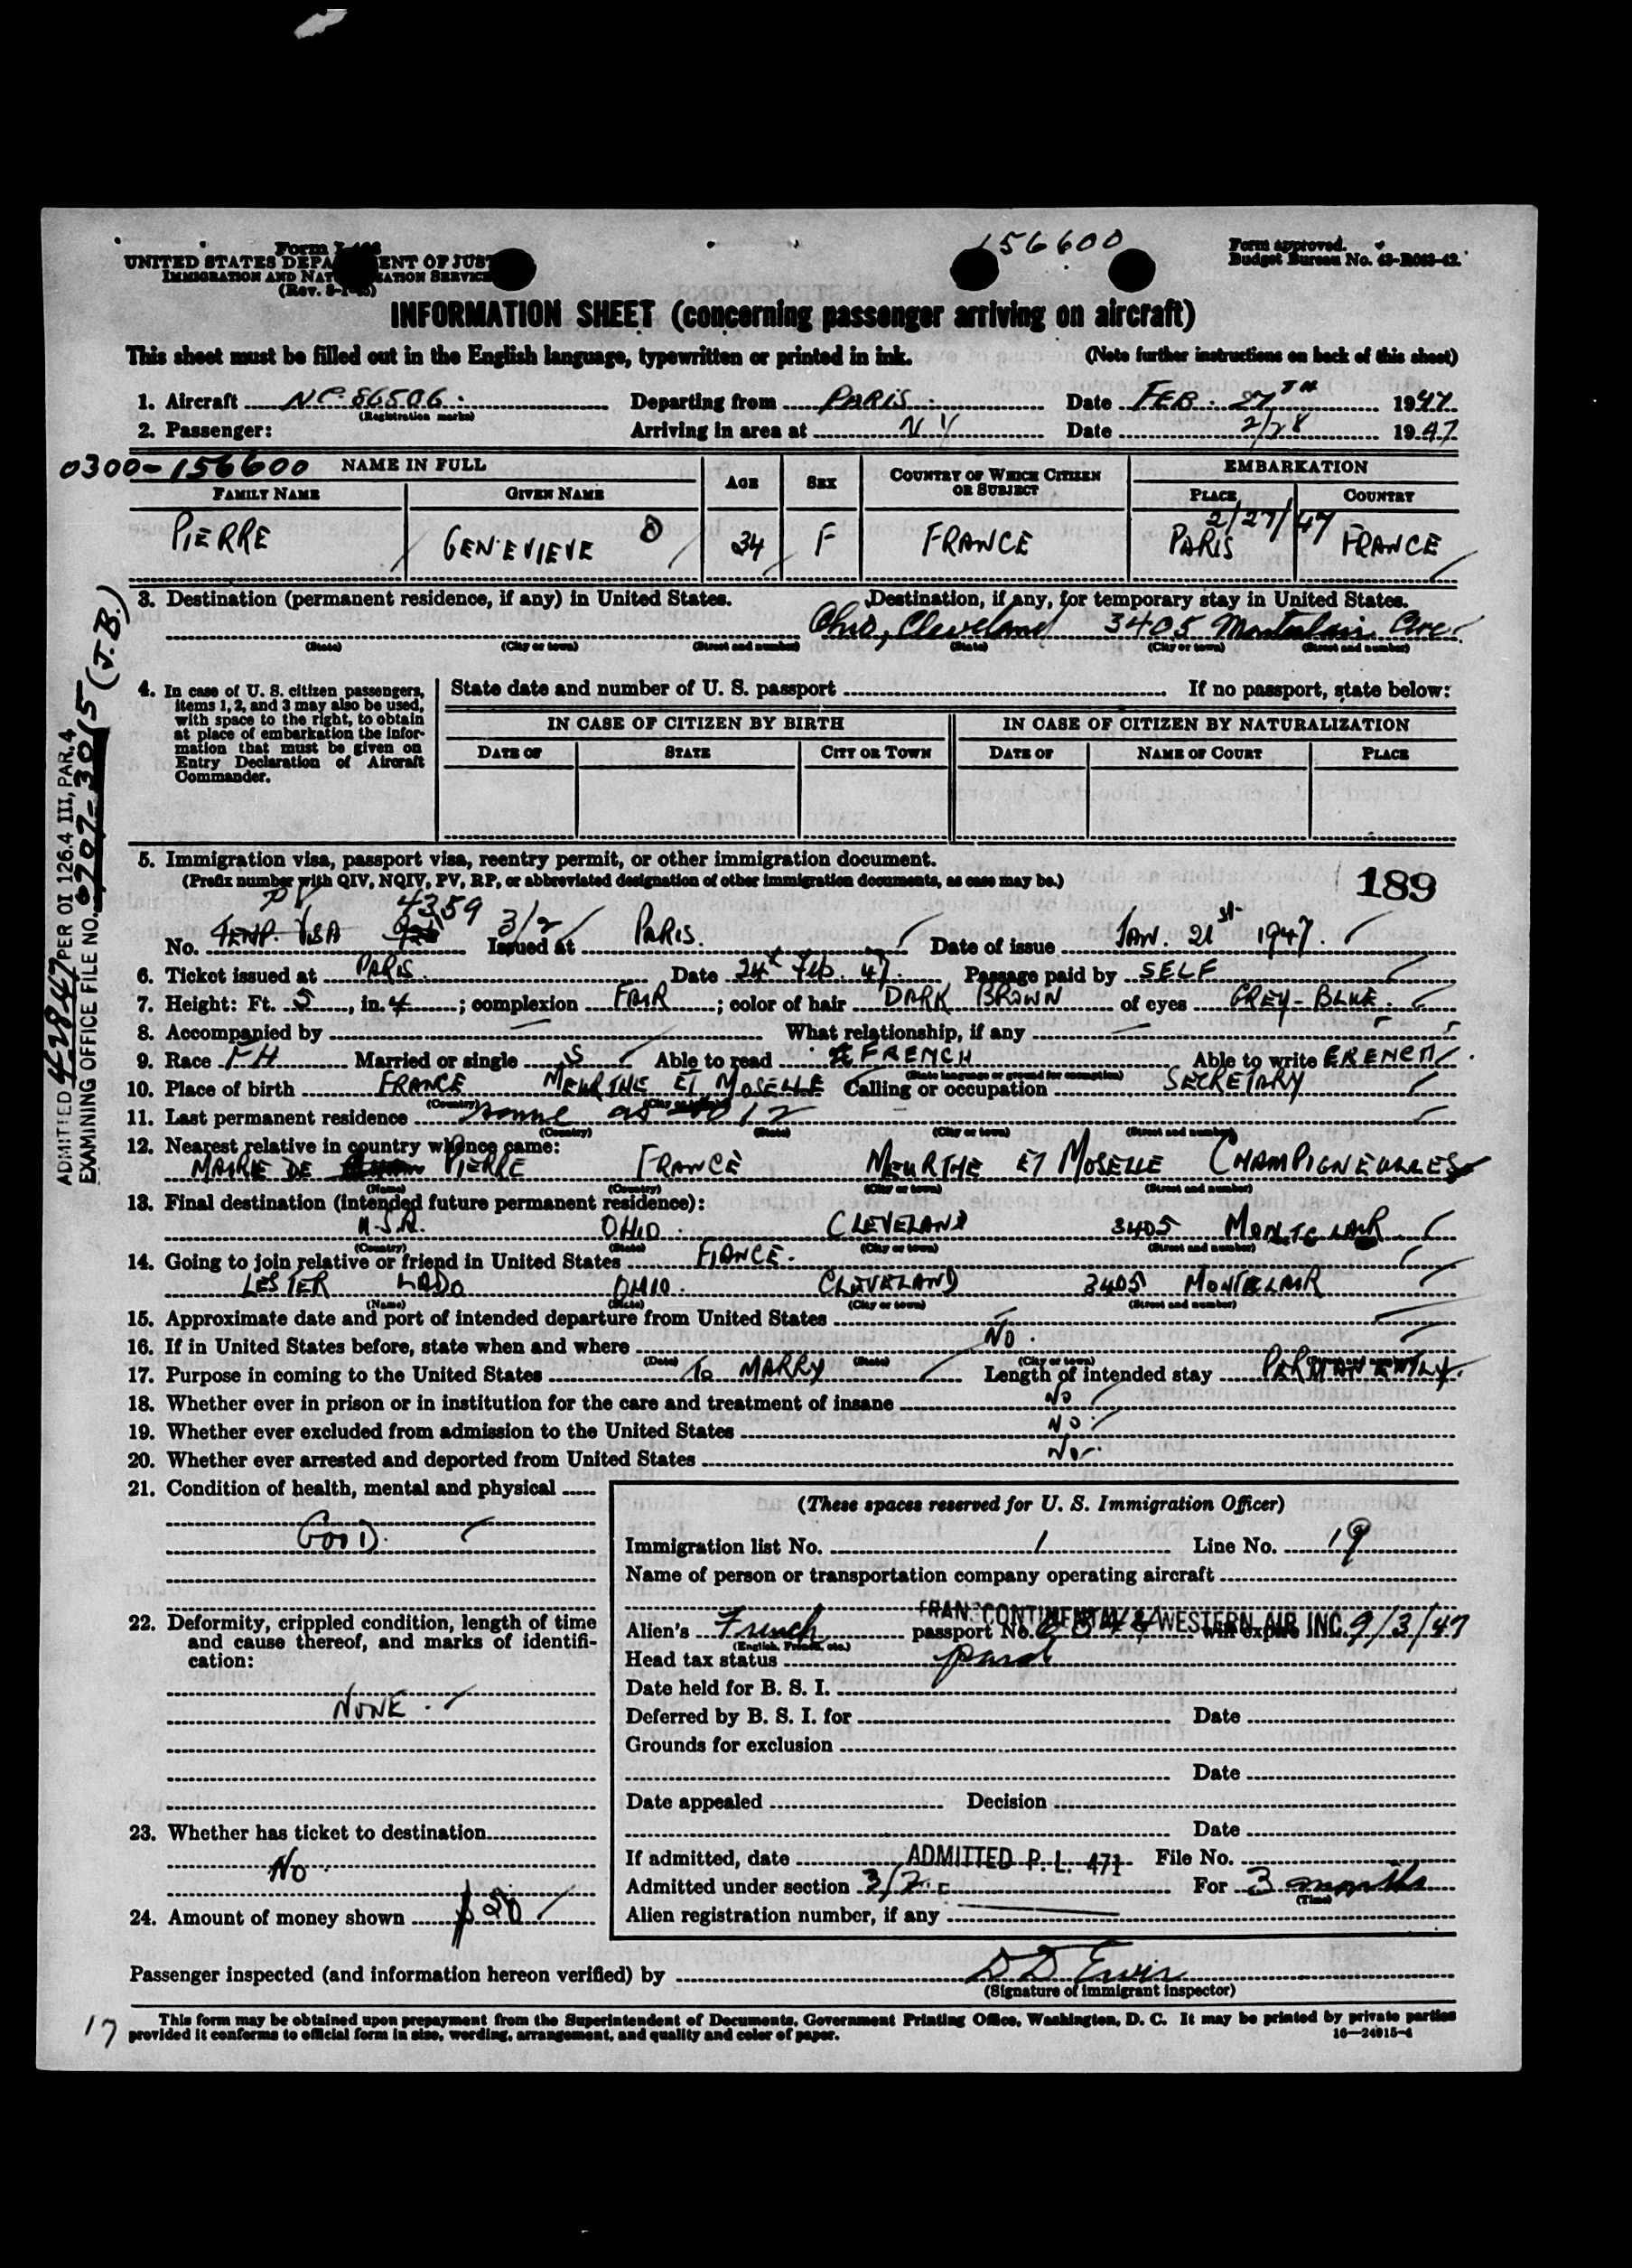 156600
Form I-466
UNITED STATES DEPA ENT OF JUST
IMMIGRATION AND NAT ZATION SERVICE
(Rev. 8-1-45)
Form approved.
Budget Bureau No. 43-R063-42.
INFORMATION SHEET (concerning passenger arriving on aircraft)
This sheet must be filled out in the English language, typewritten or printed in ink. (Note further instructions on back of this sheet)
1. Aircraft NC 86506. Departing from PARIS. Date FEB. 27TH 1947.
(Registration marks)
2. Passenger: Arriving in area at NY Date 2/28 1947
0300-156600 NAME IN FULL AGE SEX COUNTRY OF WHICH CITIZEN OR SUBJECT EMBARKATION
FAMILY NAME GIVEN NAME PLACE COUNTRY
2/27/47
PIERRE GENEVIEVE 0 34 F FRANCE PARIS FRANCE
3. Destination (permanent residence, if any) in United States. Destination, if any, for temporary stay in United States.
Ohio, Cleveland 3405 Montclair Ave.
(State) (City or town) (Street and number) (State) (City or town) (Street and number)
4. In case of U. S. citizen passengers, items 1, 2, and 3 may also be used, with space to the right, to obtain at place of embarkation the information that must be given on Entry Declaration of Aircraft Commander.
State date and number of U. S. passport If no passport, state below:
IN CASE OF CITIZEN BY BIRTH IN CASE OF CITIZEN BY NATURALIZATION
DATE OF STATE CITY OR TOWN DATE OF NAME OF COURT PLACE
5. Immigration visa, passport visa, reentry permit, or other immigration document.
(Prefix number with QIV, NQIV, PV, RP, or abbreviated designation of other immigration documents, as case may be.)
189
PV 4359 3/2
No. TEMP. VISA Issued at PARIS. Date of issue JAN. 21st 1947.
6. Ticket issued at PARIS. Date 24 Feb. 47. Passage paid by SELF
7. Height: Ft. 5, in. 4; complexion FAIR; color of hair DARK BROWN of eyes GREY-BLUE.
8. Accompanied by — What relationship, if any —
9. Race FH Married or single S Able to read FRENCH Able to write FRENCH
(State language or ground for exemption)
10. Place of birth FRANCE MEURTHE ET MOSELLE Calling or occupation SECRETARY
(Country) (City or town)
11. Last permanent residence same as No 12
(Country) (State) (City or town) (Street and number)
12. Nearest relative in country whence came:
MAIRIE DE PIERRE FRANCE MEURTHE ET MOSELLE CHAMPIGNEULLES
(Name) (Country) (City or town) (Street and number)
13. Final destination (intended future permanent residence):
U.S.A. OHIO. CLEVELAND 3405 MONTCLAIR
(Country) (State) (City or town) (Street and number)
14. Going to join relative or friend in United States FIANCE.
LESTER LADO OHIO. CLEVELAND 3405 MONTCLAIR
(Name) (State) (City or town) (Street and number)
15. Approximate date and port of intended departure from United States —
16. If in United States before, state when and where NO.
(Date) (State) (City or town)
17. Purpose in coming to the United States To MARRY Length of intended stay PERMANENTLY.
18. Whether ever in prison or in institution for the care and treatment of insane No
19. Whether ever excluded from admission to the United States No.
20. Whether ever arrested and deported from United States No.
21. Condition of health, mental and physical
GOOD.
22. Deformity, crippled condition, length of time and cause thereof, and marks of identification:
NONE.
23. Whether has ticket to destination
No.
24. Amount of money shown $ 20
(These spaces reserved for U. S. Immigration Officer)
Immigration list No. 1 Line No. 19
Name of person or transportation company operating aircraft
TRANSCONTINENTAL & WESTERN AIR INC.
Alien's French passport No. will expire 9/3/47
(English, French, etc.)
Head tax status paid
Date held for B. S. I.
Deferred by B. S. I. for Date
Grounds for exclusion
Date
Date appealed Decision
Date
If admitted, date ADMITTED P. L. 471 File No.
Admitted under section 3/2 For 3 months
(Time)
Alien registration number, if any
Passenger inspected (and information hereon verified) by D D Erwin
(Signature of immigrant inspector)
This form may be obtained upon prepayment from the Superintendent of Documents, Government Printing Office, Washington, D. C. It may be printed by private parties
provided it conforms to official form in size, wording, arrangement, and quality and color of paper. 16—24915-4
17
ADMITTED 4/28/47 PER OI 126.4 III, PAR. 4
EXAMINING OFFICE FILE NO. 0707-3015 (J.B.)